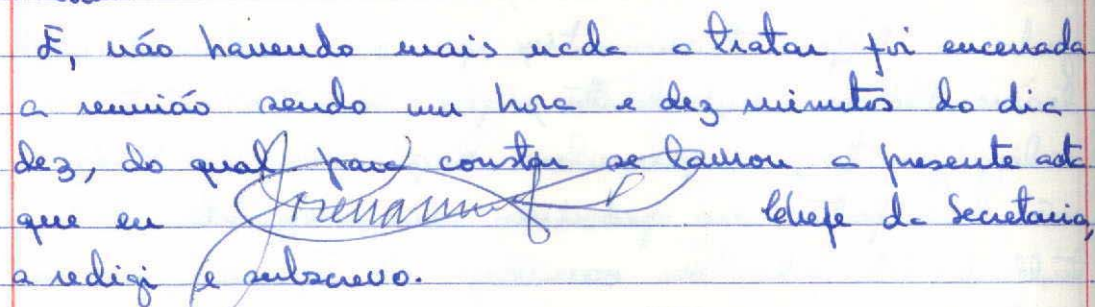 E, não havendo mais nada a tratar foi encerrada
a reunião sendo um hora e dez minutos do dia
dez, do qual para constar se lavrou a presente acta
que eu Chefe da Secretaria,
a redigi e subscrevo.